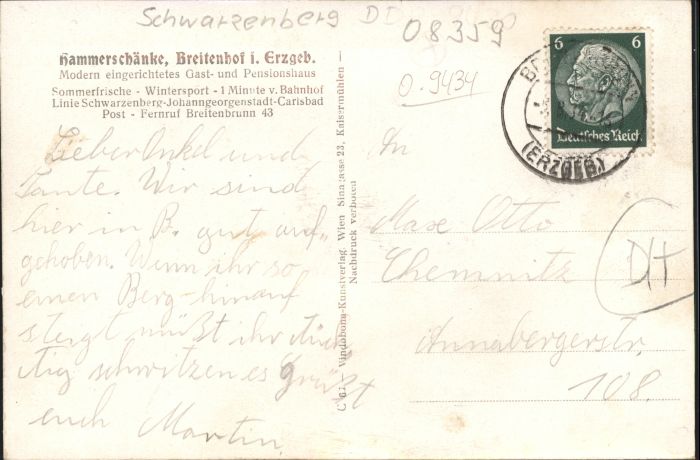 Schwarzenberg DE
08359
0.9434
Hammerschänke, Breitenhof i. Erzgeb.
Modern eingerichtetes Gast- und Pensionshaus
Sommerfrische - Wintersport - 1 Minute v. Bahnhof
Linie Schwarzenberg-Johanngeorgenstadt-Carlsbad
Post - Fernruf Breitenbrunn 43
Lieber Onkel und
Tante. Wir sind
hier in B. gut auf-
gehoben. Wenn ihr so
einen Berg hinauf
steigt müßt ihr tüch
tig schwitzen es grüßt
euch Martin.
C 61. - Vindobona-Kunstverlag, Wien Sinagasse 23, Kaisermühlen -
Nachdruck verboten
6 6
Deutsches Reich
(ERZGEB.)
An
Max Otto
Chemnitz
Annabergerstr.
108.
DH